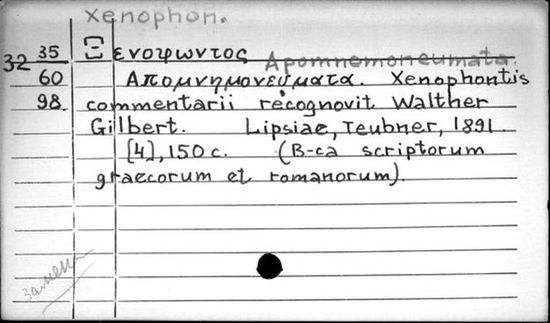 Xenophon.
35 Ξενοφωντος Apomnemoneumata.
32
60 Απομνημονευματα. Xenophontis
98. commentarii recognovit Walther
Gilbert. Lipsiae, Teubner, 1891.
[4], 150 с. (B-ca scriptorum
graecorum et romanorum).
замена